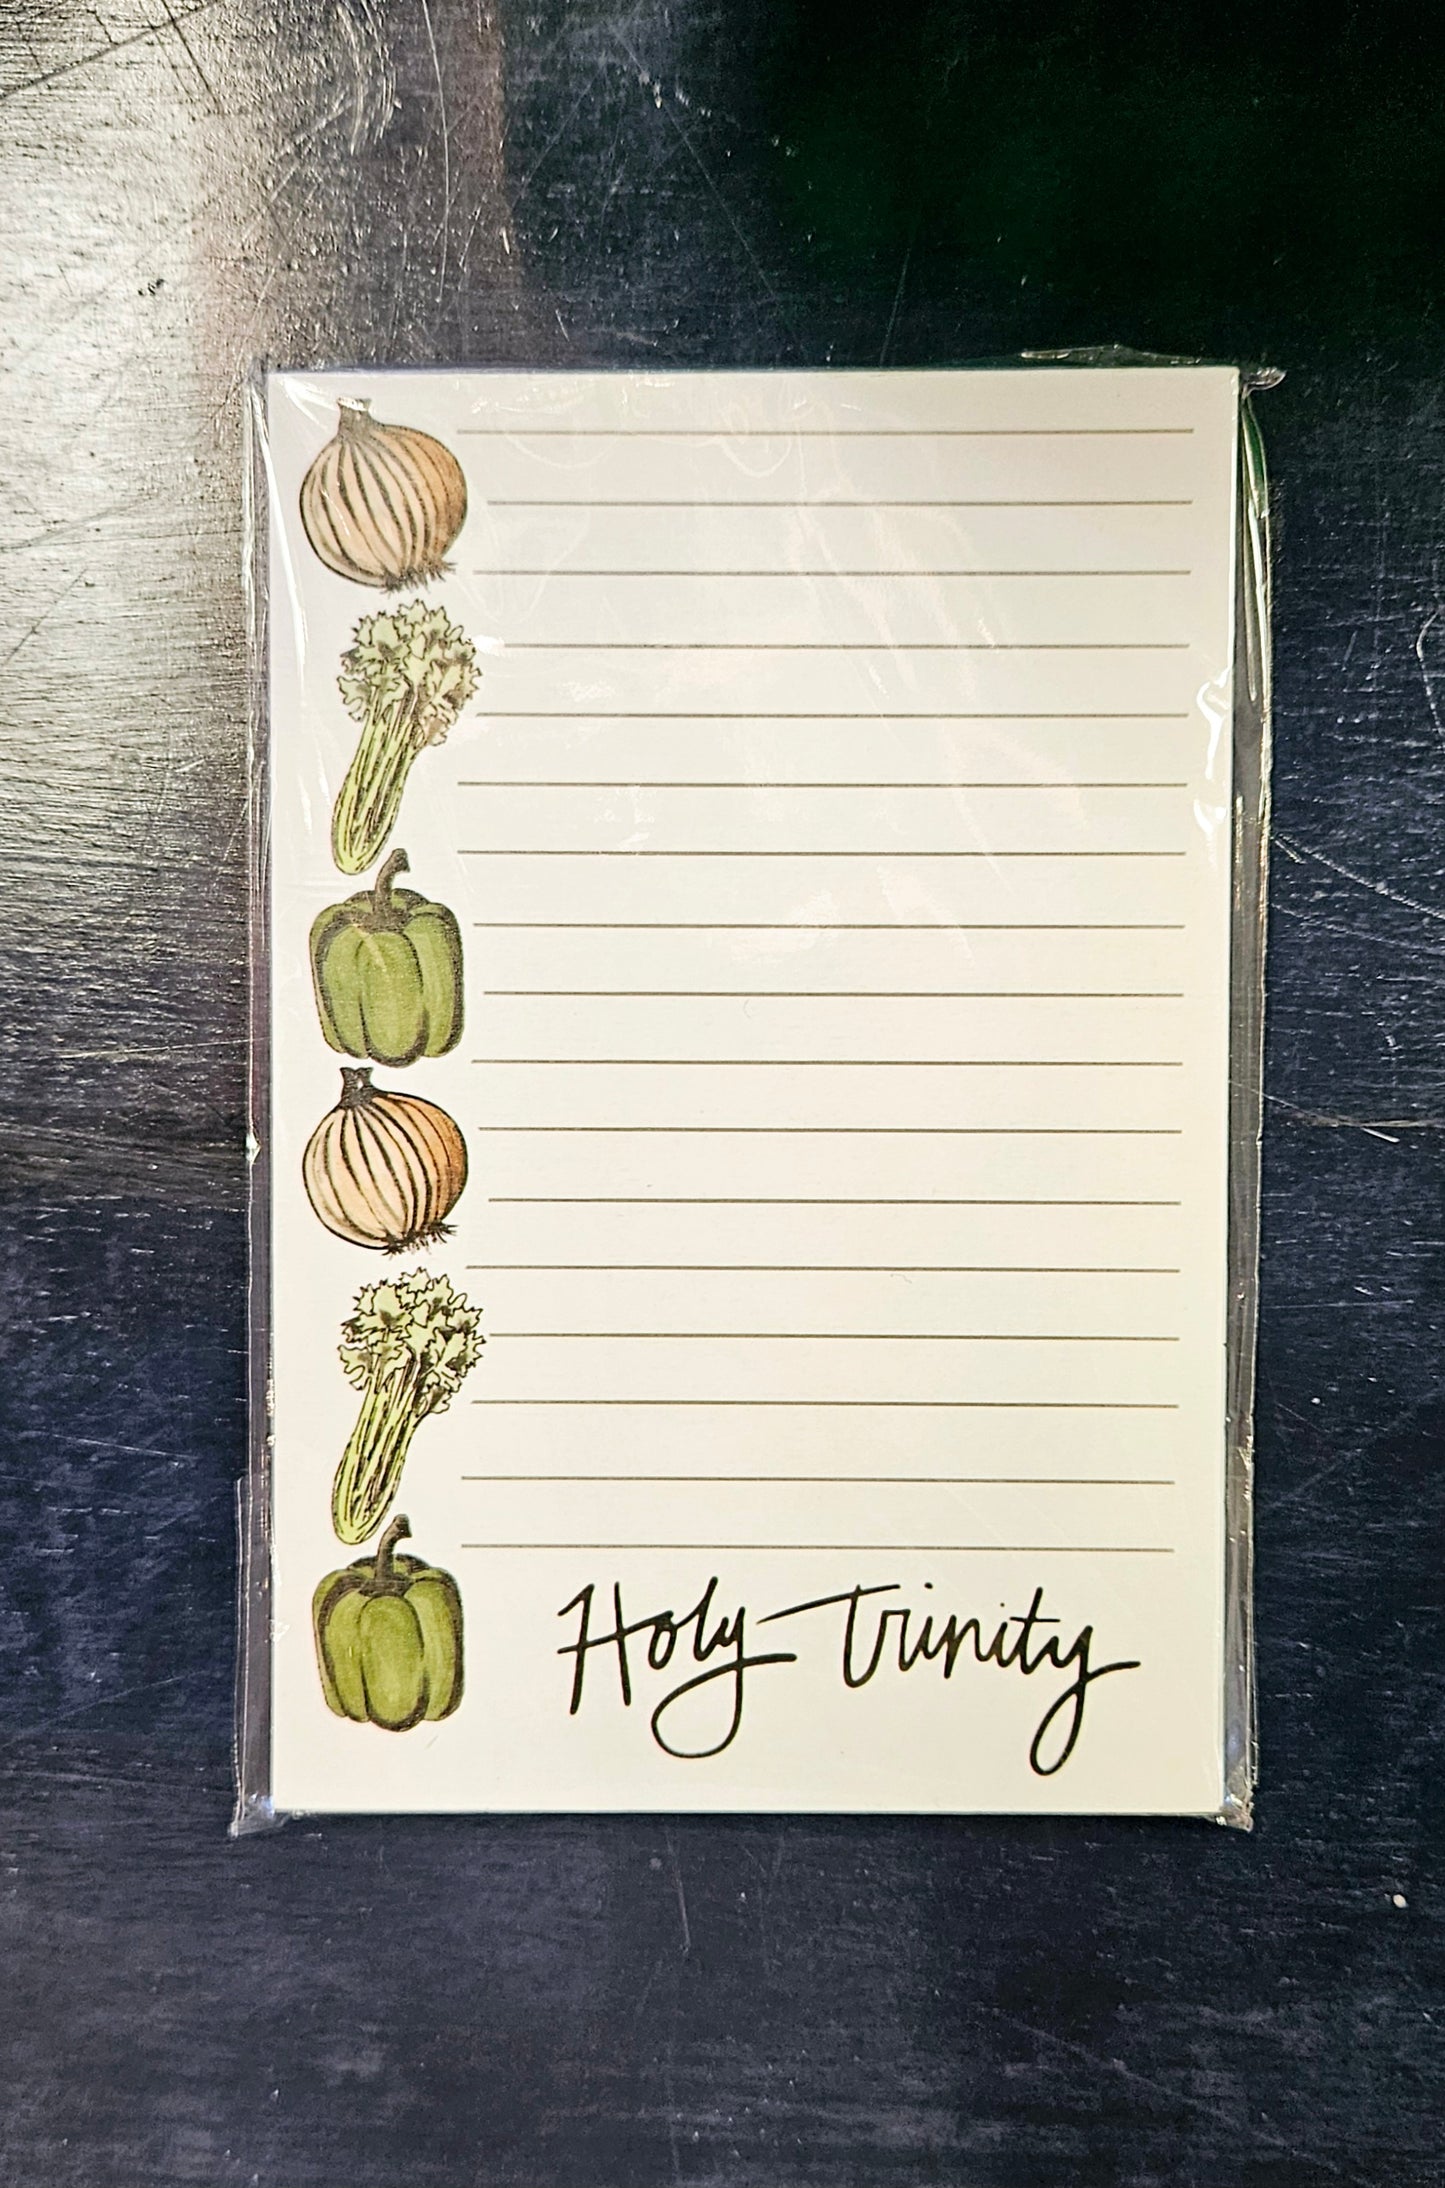 Holy Trinity